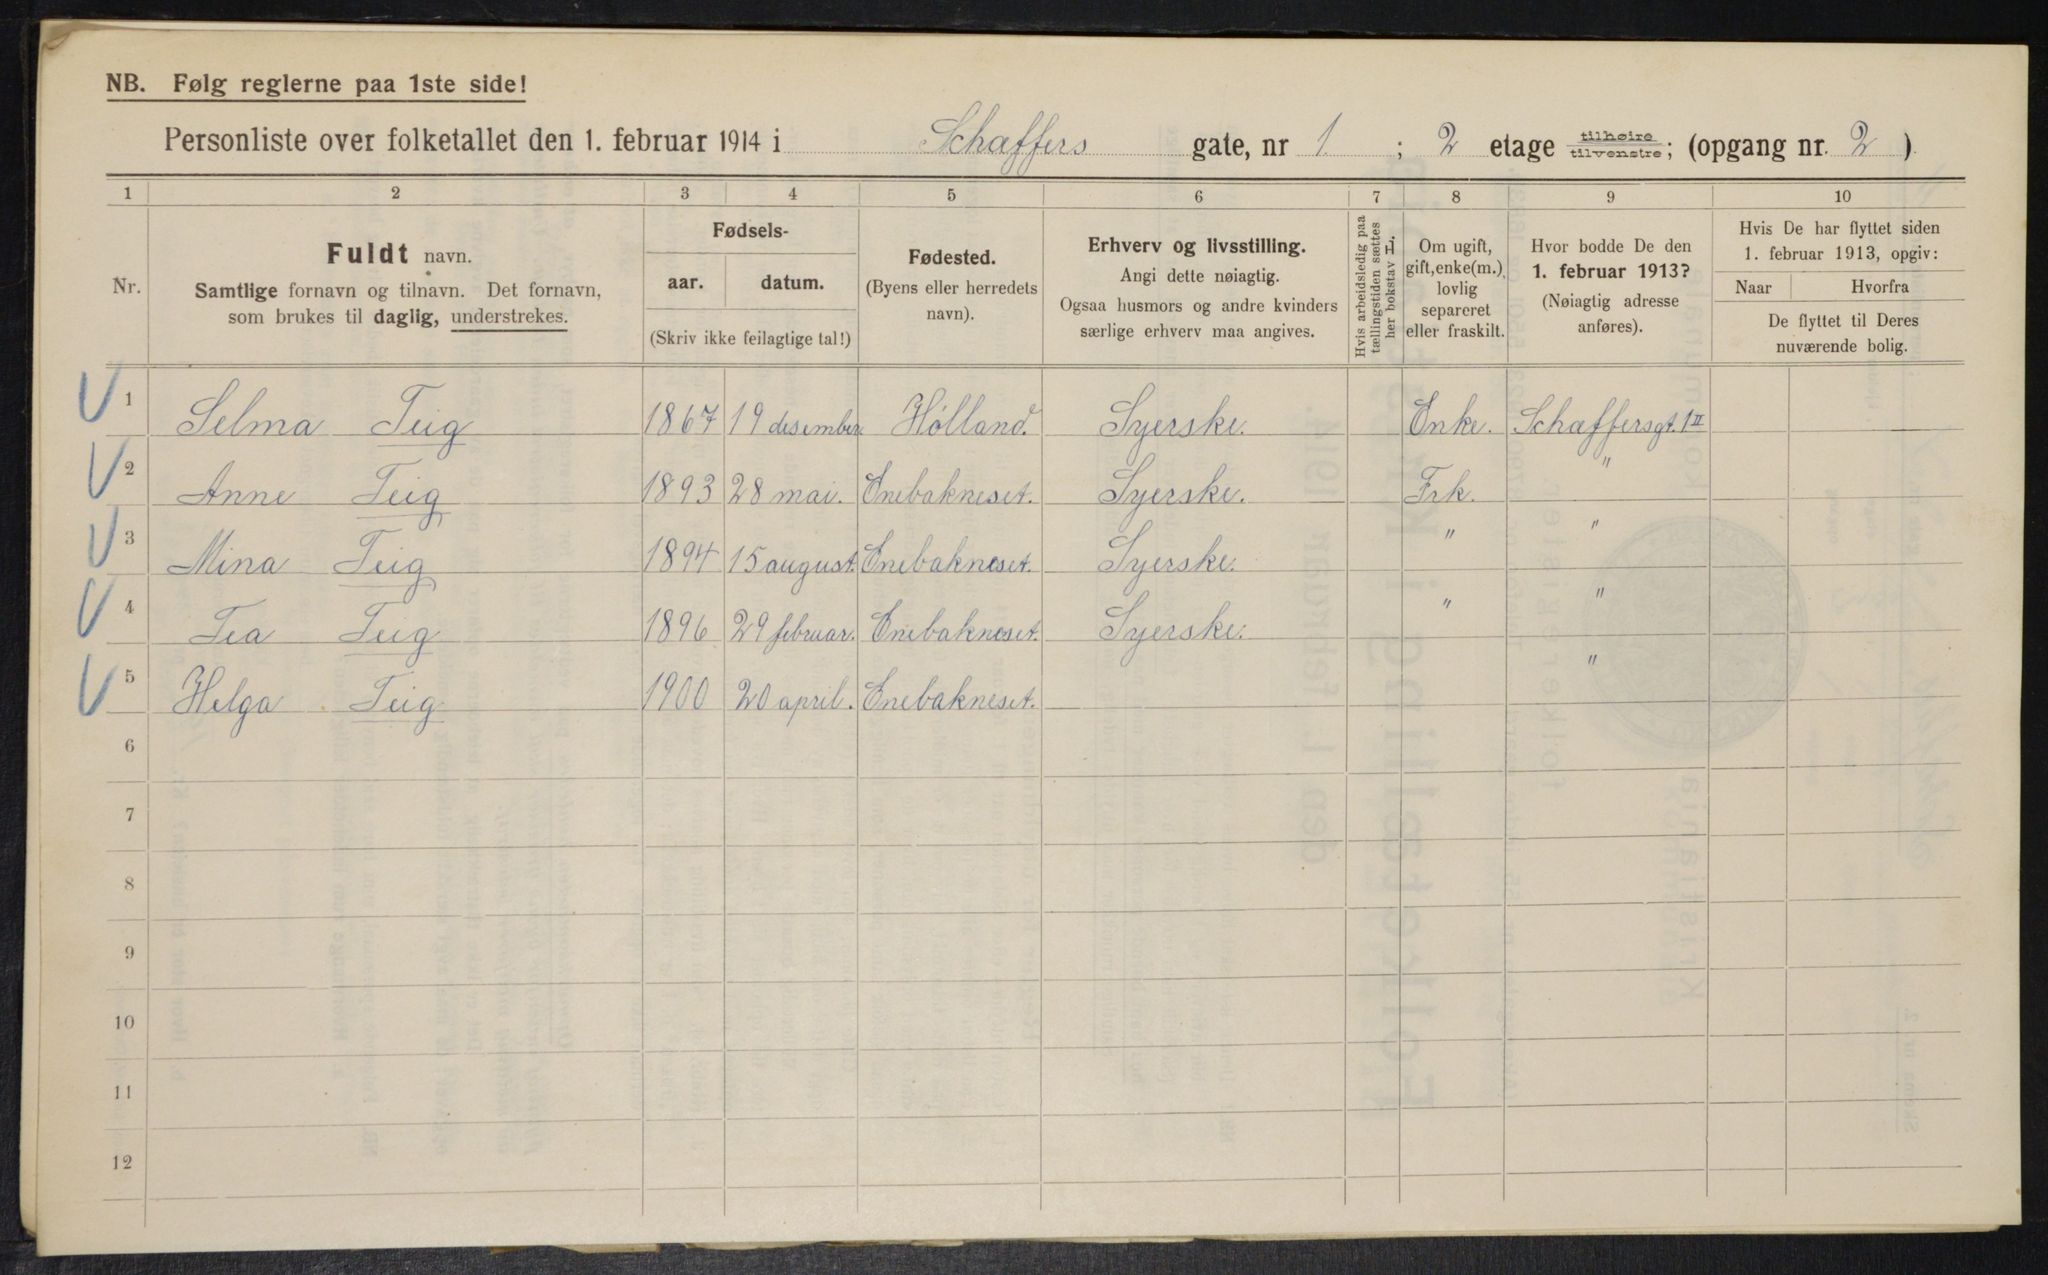 NB. Følg reglerne paa 1ste side!
Personliste over folketallet den 1. februar 1914 i Schaffers gate, nr 1 ; 2 etage tilhøire tilvenstre; (opgang nr. 2 ).
1 2 3 4 5 6 7 8 9 10
Nr.
Fuldt navn.
Samtlige fornavn og tilnavn. Det fornavn,
som brukes til daglig, understrekes.
Fødsels-
aar. datum.
(Skriv ikke feilagtige tal!)
Fødested.
(Byens eller herredets
navn).
Erhverv og livsstilling.
Angi dette nøiagtig.
Ogsaa husmors og andre kvinders
særlige erhverv maa angives.
Hvis arbeidsledig paa
tællingstiden sættes
her bokstav L.
Om ugift,
gift, enke(m.),
lovlig
separeret
eller fraskilt.
Hvor bodde De den
1. februar 1913?
(Nøiagtig adresse
anføres).
Hvis De har flyttet siden
1. februar 1913, opgiv:
Naar Hvorfra
De flyttet til Deres
nuværende bolig.
1 Selma Teig 1867 19 desember Hölland. Syerske. Enke. Schaffersgt. 1 II
2 Anne Teig 1893 28 mai. Enebakneset. Syerske. Frk. "
3 Mina Teig 1894 15 august. Enebakneset. Syerske. " "
4 Tea Teig 1896 29 februar. Enebakneset. Syerske. " "
5 Helga Teig 1900 20 april. Enebakneset. "
6
7
8
9
10
11
12